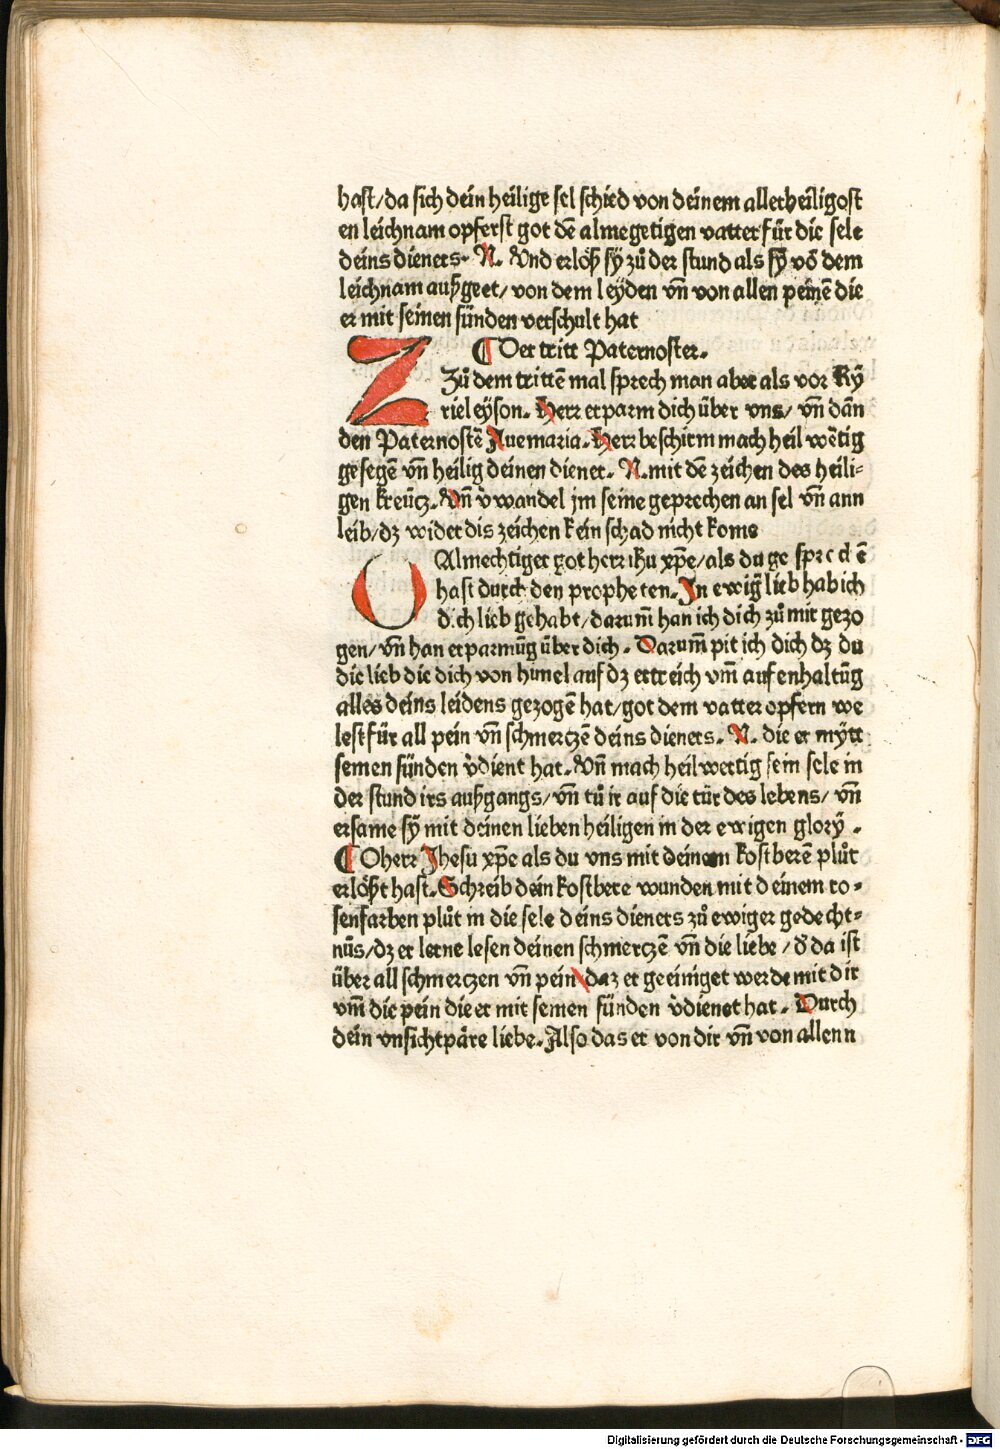 hast/da sich dein heilige sel schied von deinem allerheiligost
en leichnam opferst got dē almegetigen vatter für die sele
deins dieners. N. Und erlöß sÿ zů der stund als sÿ vō dem
leichnam außgeet/von dem leÿden vn̄ von allen peinē die
er mit seinen sünden verschult hat
¶ Der tritt Paternoster.
Zů dem trittē mal sprech man aber als vor Kÿ
rieleÿson. Herr erparm dich über vns/ vn̄ dān
den Paternostē Auemaria. Herr beschirm mach heil wētig
gesegē vn̄ heilig deinen diener. N. mit dē zeichen des heili⸗
gen kreücz. Vn̄ v̓wandel jm seine geprechen an sel vn̄ ann
leib/dz wider dis zeichen kein schad nicht kome
O Almechtiger got herr ihu xp̄e/als du ge sprechē
hast durch den propheten. In ewiḡ lieb hab ich
dich lieb gehabt/darum̄ han ich dich zů mit gezo
gen/vn̄ han erparmūg über dich. Darum̄ pit ich dich dz du
die lieb die dich von himel auf dz ertreich vm̄ aufenhaltūg
alles deins leidens gezogē hat/got dem vatter opfern we
lest für all pein vn̄ schmerczē deins dieners. N. die er mÿtt
seinen sünden v̓dient hat. Vn̄ mach heilwertig sein sele in
der stund irs außgangs/vn̄ tů ir auf die tür des lebens/ vn̄
ersame sÿ mit deinen lieben heiligen in der ewigen glorÿ.
¶ O herr Jhesu xp̄e als du vns mit deinem kostberē plůt
erlößt hast. Schreib dein kostbere wunden mit deinem ro⸗
senfarben plůt in die sele deins dieners zů ewiger gedecht⸗
nüs/dz er lerne lesen deinen schmerczē vn̄ die liebe/ d̓ da ist
über all schmerczen vn̄ pein/daz er geeiniget werde mit dir
vm̄ die pein die er mit seinen sünden v̓dienet hat. Durch
dein vnsichtpäre liebe. Also das er von dir vn̄ von allenn
Digitalisierung gefördert durch die Deutsche Forschungsgemeinschaft - DFG